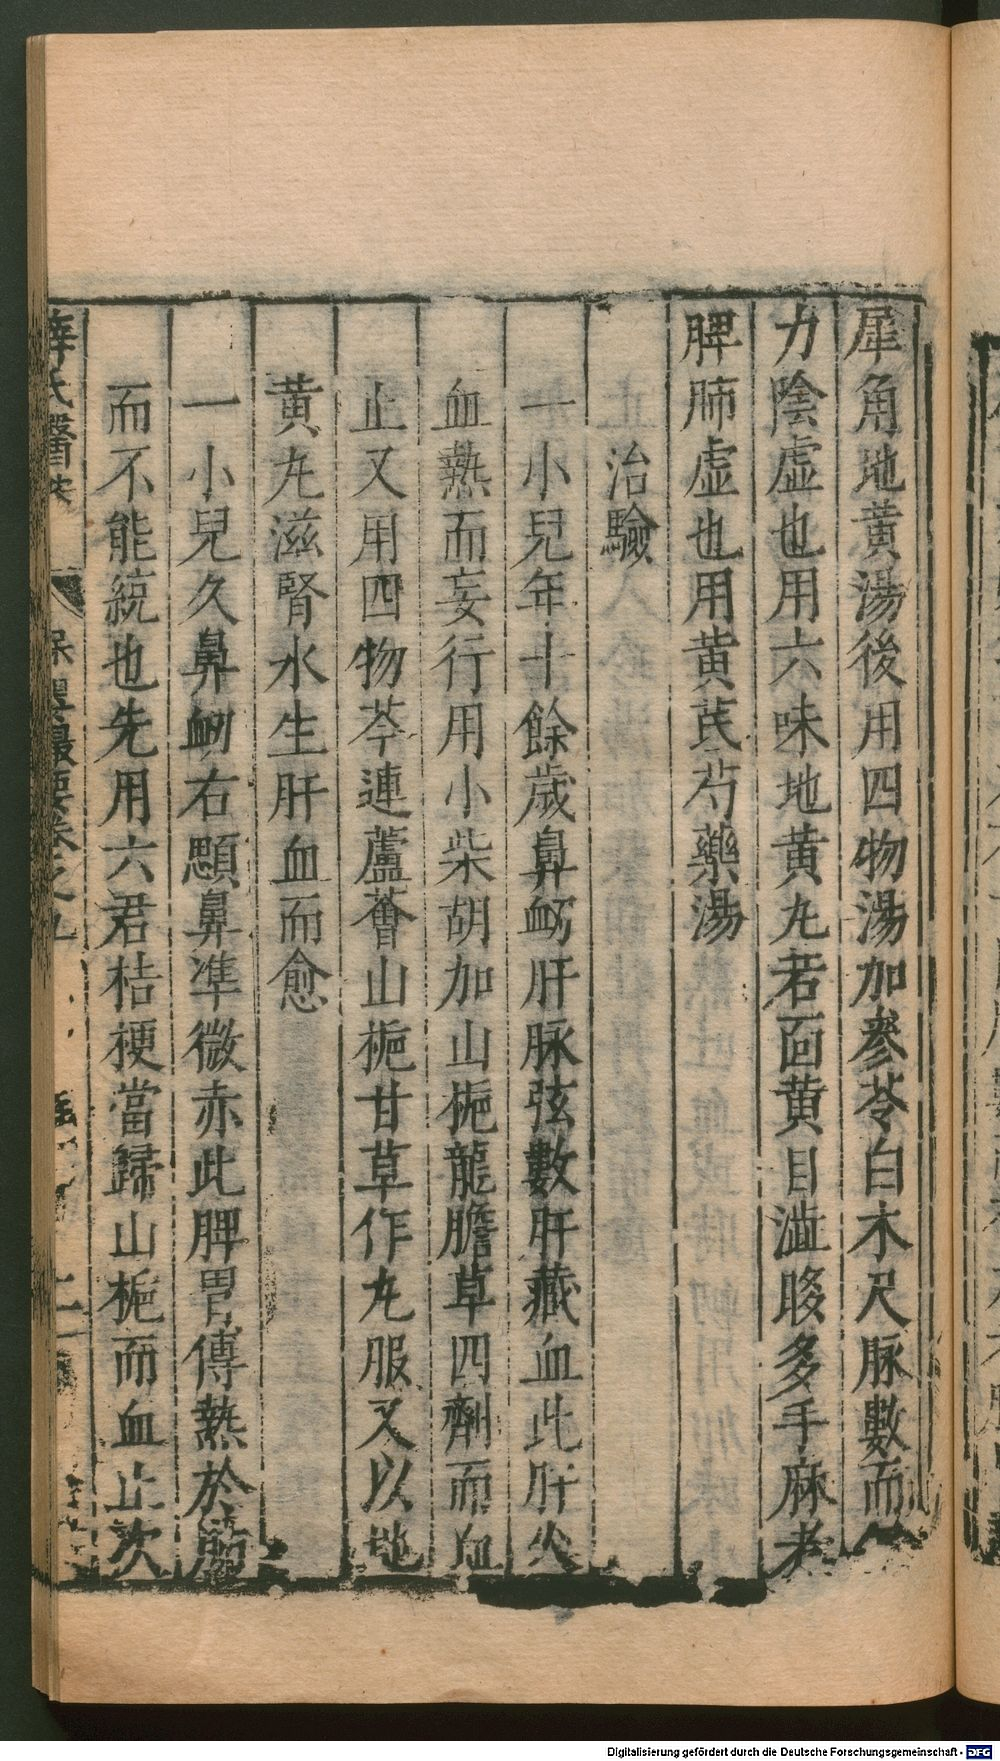 犀角地黃湯後用四物湯加參苓白朮尺脉數而
力陰虚也用六味地黄丸若面黄目澁眵多手麻者
脾肺虚也用黄芪芍藥湯
治驗
一小兒年十餘歲鼻衂肝脉弦數肝藏血此肝火
血熱而妄行用小柴胡加山梔龍膽草四劑而血
止又用四物芩連蘆薈山梔甘草作丸服又以地
黄丸滋腎水生肝血而愈
一小兒久鼻衂右顋鼻準微赤此脾胃傳熱於肺
而不能統也先用六君桔梗當歸山梔而血止次
薛氏醫按 保嬰撮要卷之九
Digitalisierung gefördert durch die Deutsche Forschungsgemeinschaft - DFG